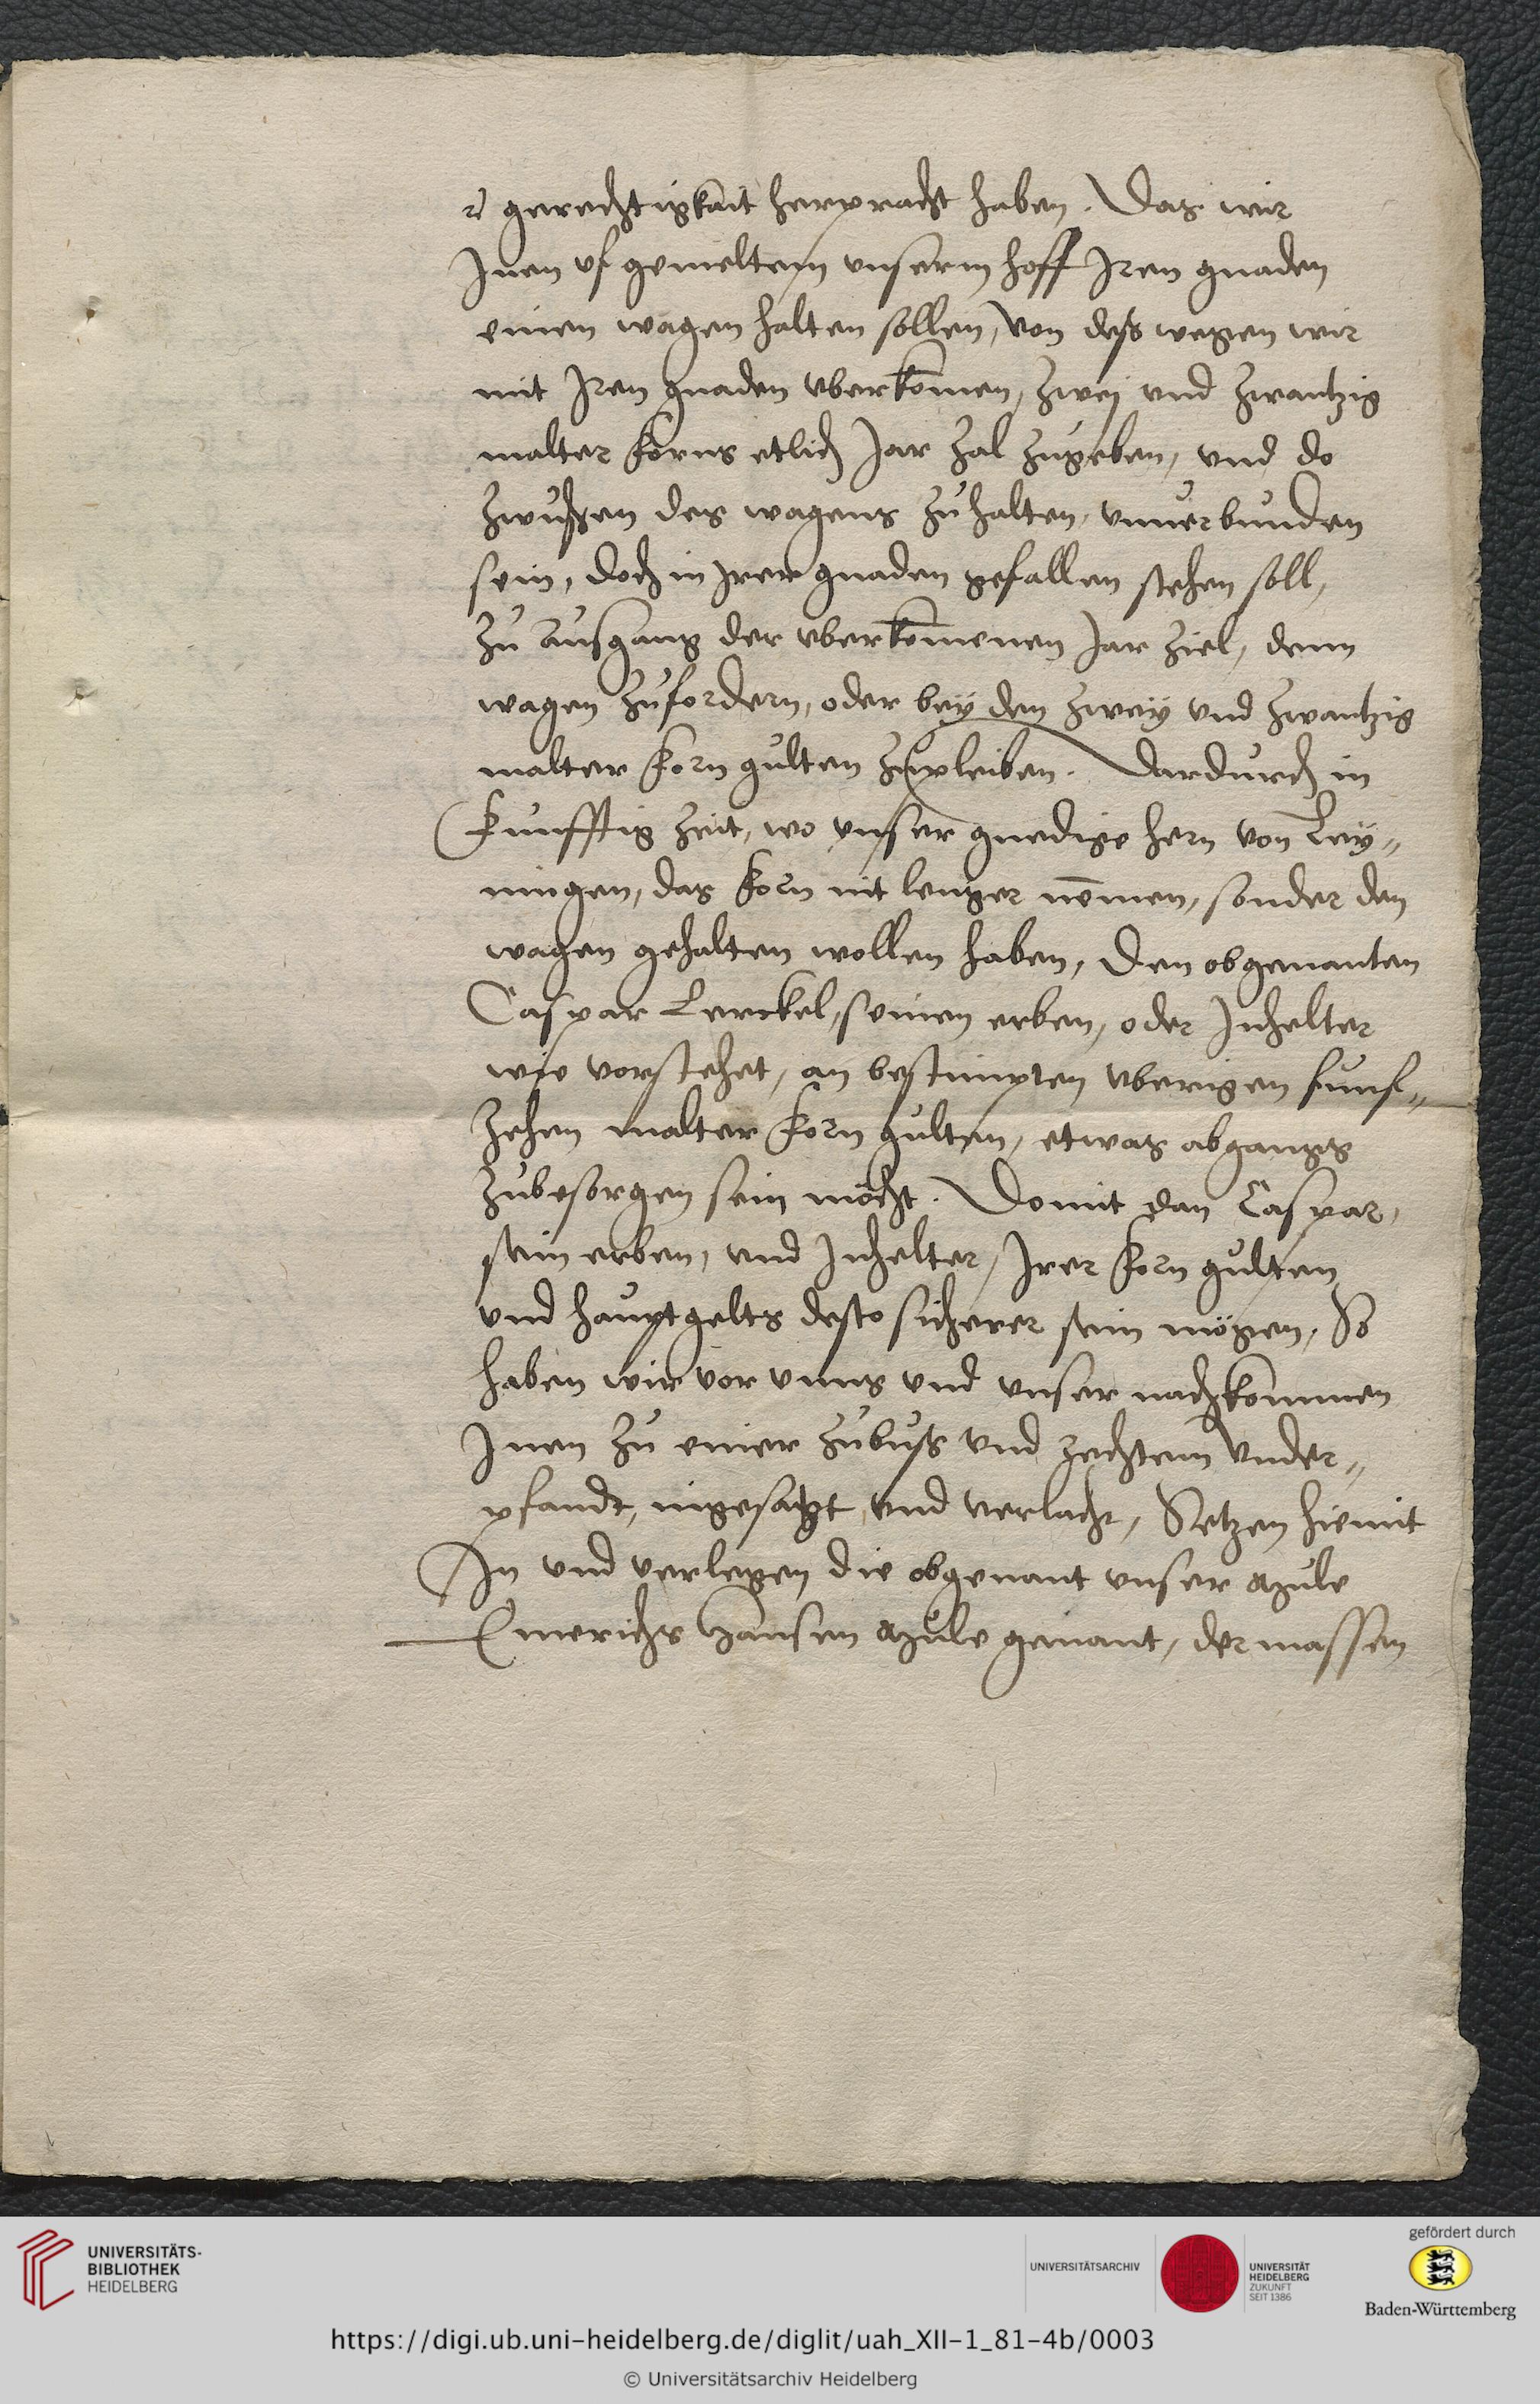 gerechtigkait herpracht haben. Das wir
Inen vf gemeltem vnserm hoff Iren gnaden
einen wagen halten sollen, von deß wegen wir
mit Iren gnaden vberkomen, zwej vnd zwantzig
malter korns etlich Jar zal zugeben, vnd do
zwuschen des wagens zuhalten, vnuerbunden
sein, doch in Irer gnaden gefallen stehen soll,
zu ausgang der vberkomenen Jar ziel, denn
wagen zufordern, oder bey den zwey vnd zwantzig
malter korn gulten zupleiben. Dardurch in
kunfftig zeit, wo vnser gnedige hern von Ley„
ningen, das korn nit lenger nemen, sonder den
wagen gehalten wollen haben, Den obgenanten
Caspar Lerckel, seinen erben, oder Inhelter
wie vorstehet, an bestimpten vberigen funf„
zehen malter korn gulten, etwas abgangs
zubesorgen sein möcht. Domit dan Caspar,
sein erben, vnd Inhelter, Irer korn gulten
vnd hauptgelts desto sicherer sein mögen, So
haben wir vor vnns vnd vnser nachkommen
Inen zu einer zubuß vnd rechtem vnder„
pfandt, ingesatzt vnd verlacht, Setzen hiemit
In vnd verlegen die obgenant vnser
Emerichs Hansen genant, dermassen
UNIVERSITÄTS-
BIBLIOTHEK
HEIDELBERG
UNIVERSITÄTSARCHIV
UNIVERSITÄT
HEIDELBERG
ZUKUNFT
SEIT 1386
gefördert durch
Baden-Württemberg
https://digi.ub.uni-heidelberg.de/diglit/uah_XII-1_81-4b/0003
© Universitätsarchiv Heidelberg